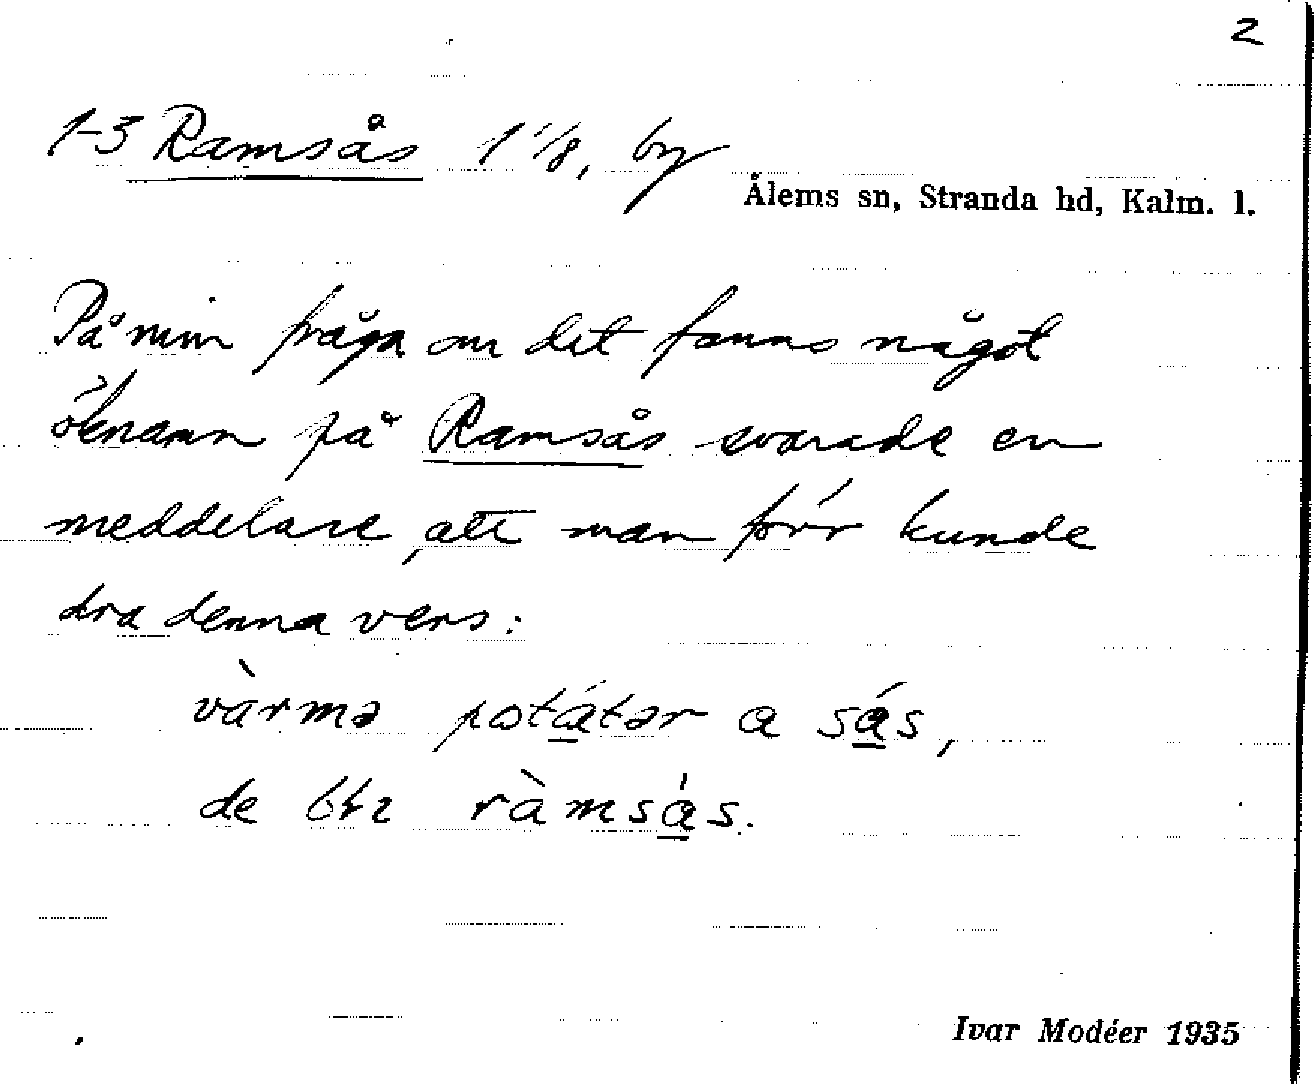 2
1-3 Ramsås 1 1/8, by
Ålems sn, Stranda hd, Kalm. l.
På min fråga om det fanns något
öknamn på Ramsås svarade en
meddelare, att man förr kunde
dra denna vers:
vàrmə potátər a sás,
de ràmsás.
Ivar Modéer 1935